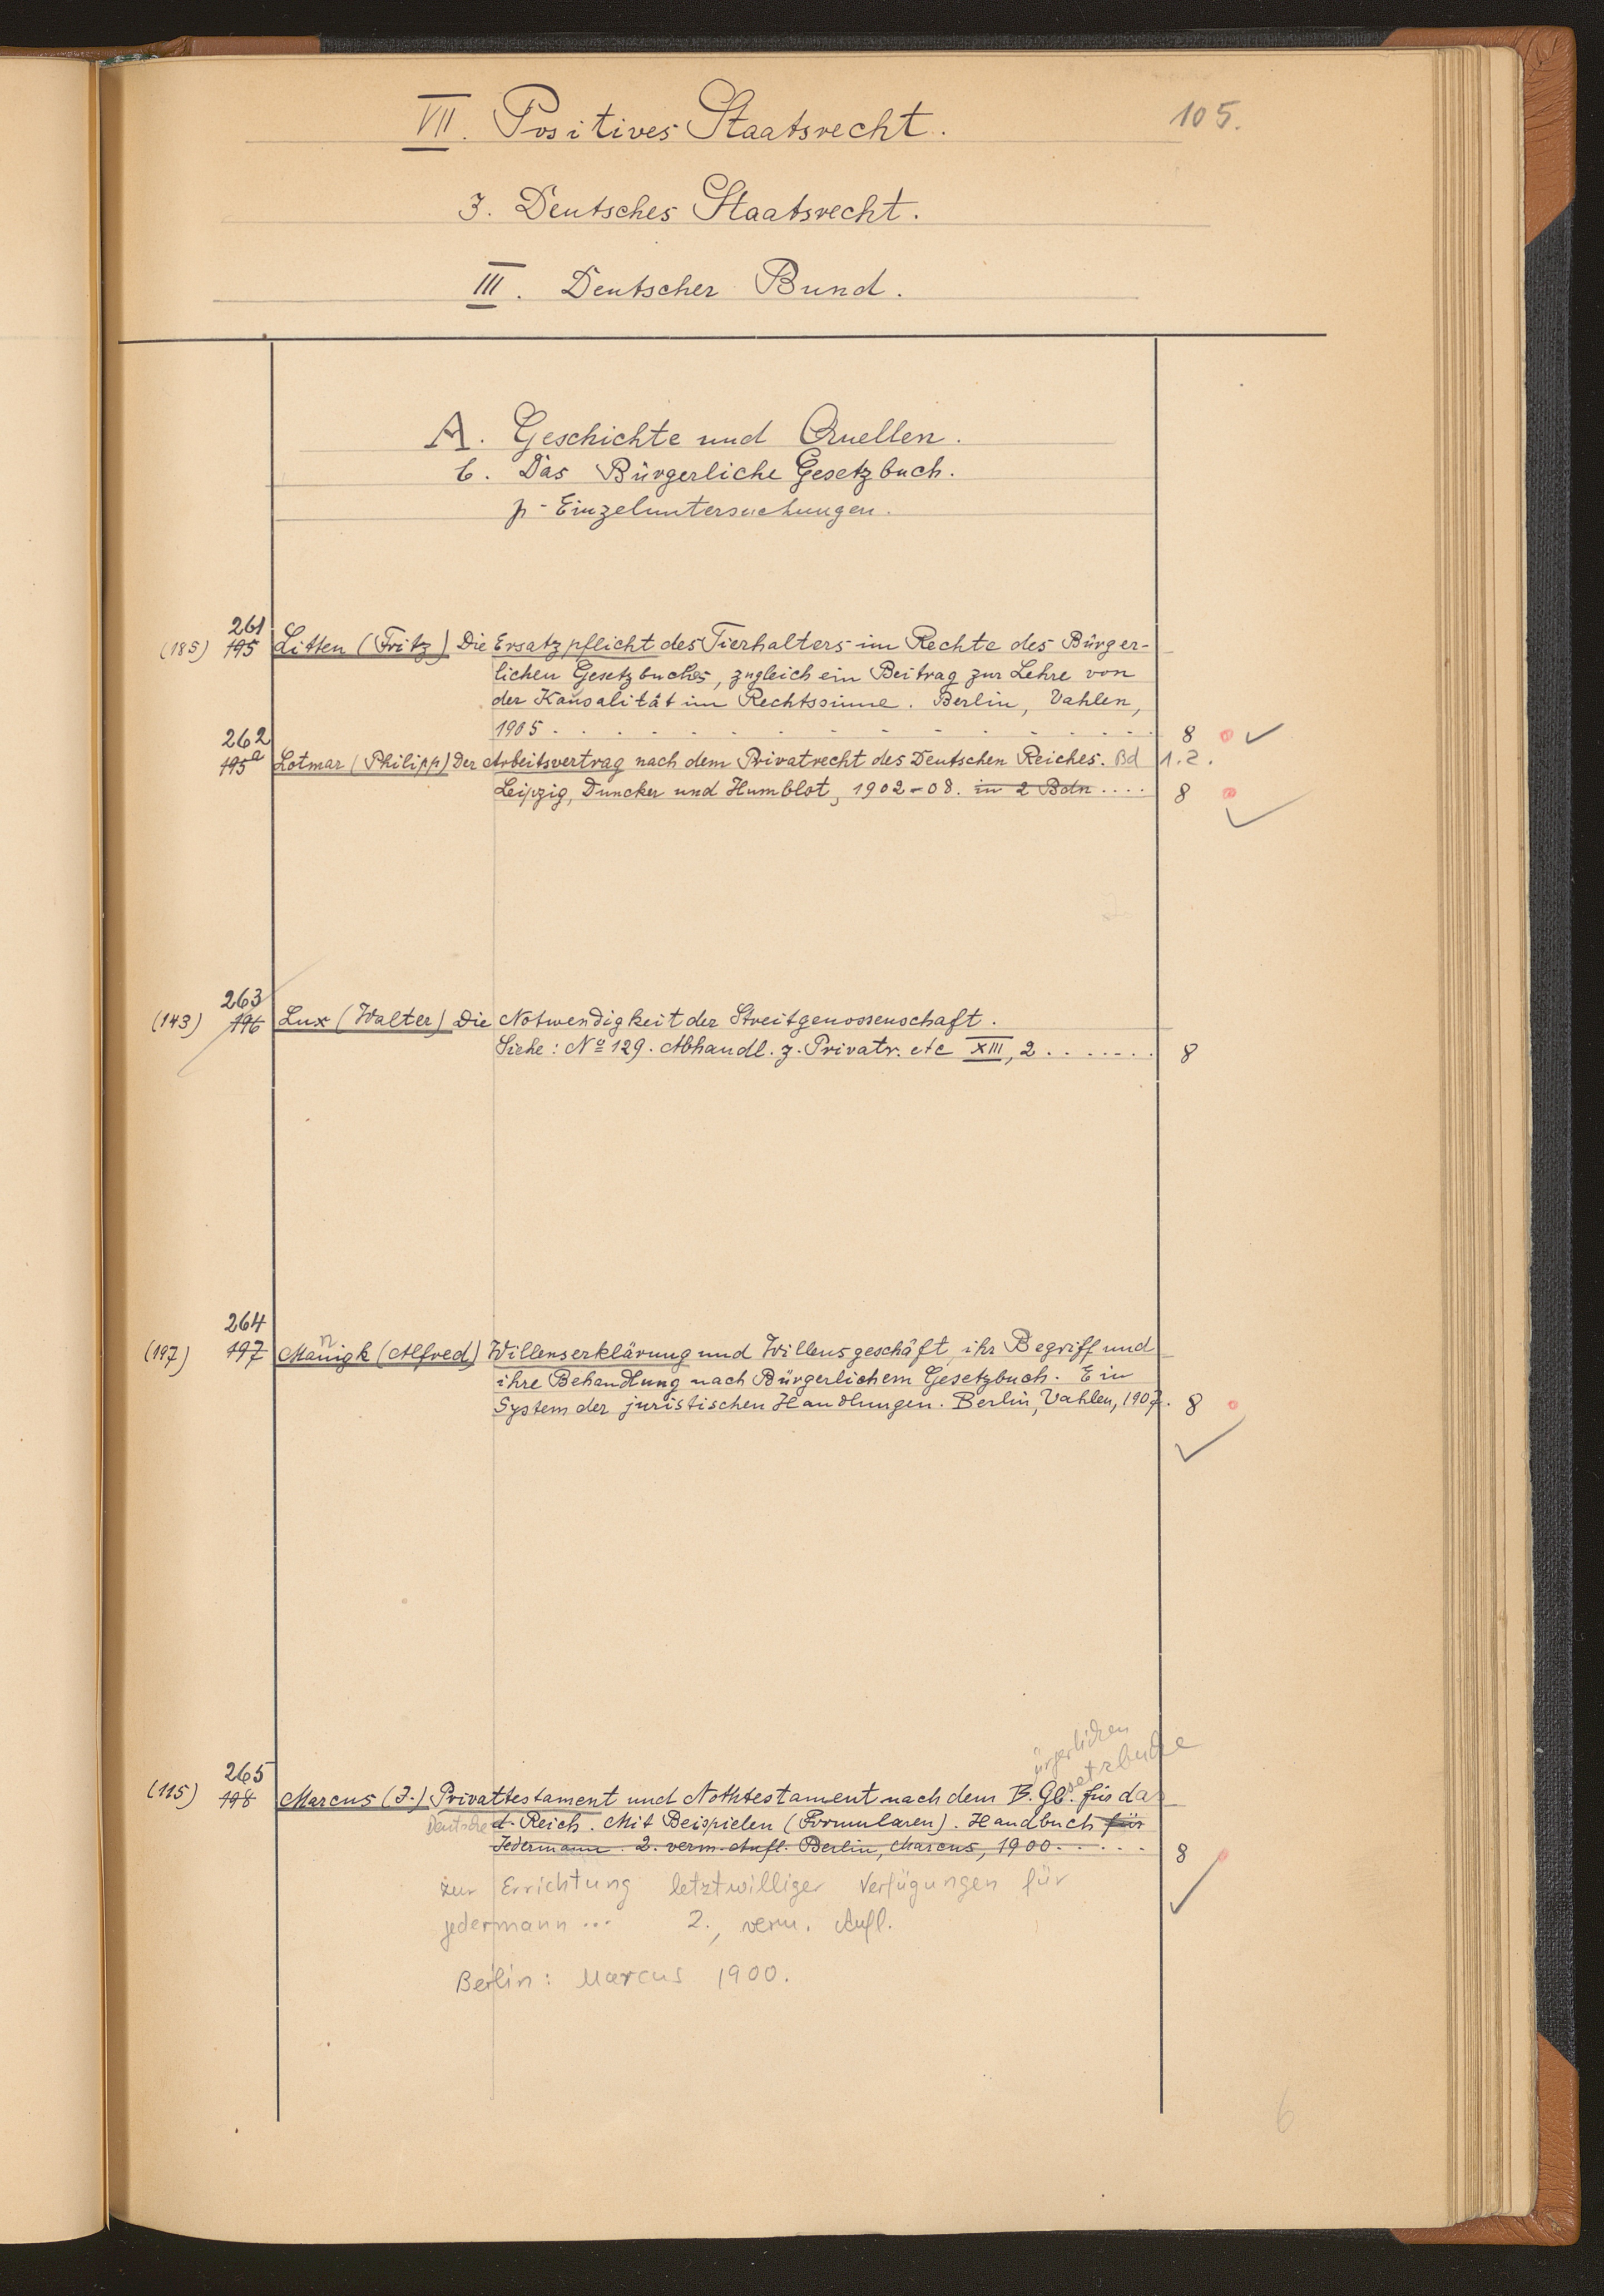 VII. Positives Staatsrecht.
105.
3. Deutsches Staatsrecht.
III. Deutscher Bund.
A. Geschichte und Quellen.
b. Das Bürgerliche Gesetzbuch.
β - Einzeluntersuchungen.
261
(185) 195 Litten (Fritz) Die Ersatzpflicht des Tierhalters im Rechte des Bürger-
lichen Gesetzbuches, zugleich ein Beitrag zur Lehre von
der Kausalität im Rechtssinne. Berlin, Vahlen,
1905 . . . . . . . . . . . . . . . 8
262
195a Lotmar (Philipp) Der Arbeitsvertrag nach dem Privatrecht des Deutschen Reiches. Bd 1.2.
Leipzig, Duncker und Humblot, 1902-08. in 2 Bdn .... 8
263
(143) 196 Lux (Walter) Die Notwendigkeit der Streitgenossenschaft.
Siehe: No 129. Abhandl. z. Privatr. etc XIII, 2 ....... 8
264
n
(197) 197 Manigk (Alfred) Willenserklärung und Willensgeschäft, ihr Begriff und
ihre Behandlung nach Bürgerlichem Gesetzbuch. Ein
System der juristischen Handlungen. Berlin, Vahlen, 1907. 8
ürgerlichen
setzbuche
265
(115) 198 Marcus (J.) Privattestament und Nothtestament nach dem B. Gb. für das
Deutsche d. Reich. Mit Beispielen (Formularen). Handbuch für
Jedermann. 2. verm. Aufl. Berlin, Marcus, 1900 . . . . . 8
zur Errichtung letztwilliger Verfügungen für
jedermann ... 2., verm. Aufl.
Berlin: Marcus 1900.
6